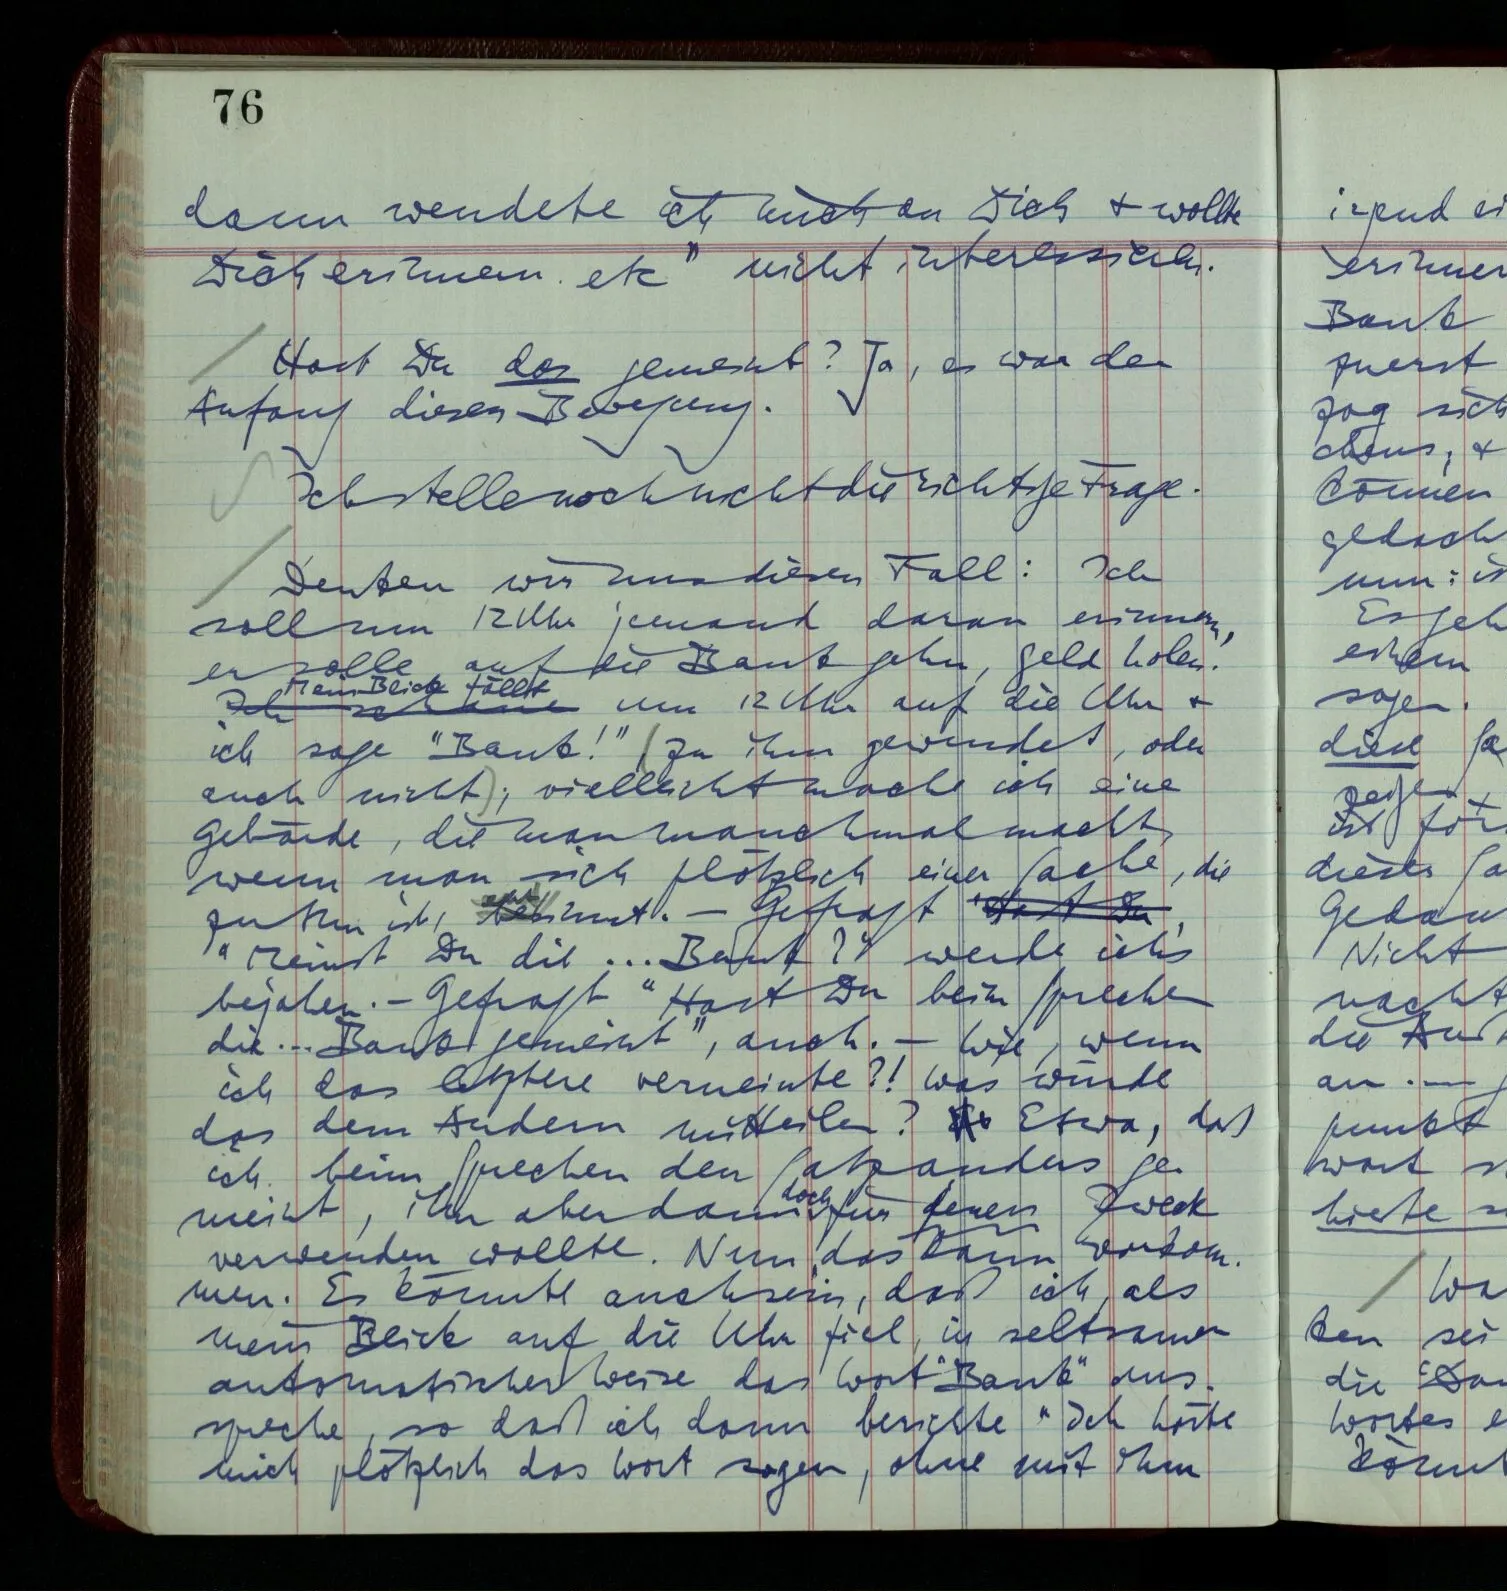 76
dann wendete ich mich an Dich + wollte
Dich erinnern. etc" nicht interessieren.
Hast Du das gemeint? Ja, es war der
Anfang dieser Bewegung.
Ich stelle noch nicht die richtige Frage.
Denken wir uns diesen Fall: Ich
soll um 12 Uhr jemand daran erinnern,
er solle auf die Bank gehn, Geld holen.
Mein Blick fällt
Ich schaue um 12 Uhr auf die Uhr +
ich sage "Bank!" (zu ihm gewendet, oder
auch nicht); vielleicht mache ich eine
Gebärde, die man manchmal macht,
wenn man sich plötzlich einer Sache, die
zu tun ist, besinnt. – Gefragt "Hast Du
"Meinst Du die ... Bank?" werde ich's
bejahen. – Gefragt "Hast Du beim Sprechen
die ... Bank gemeint", auch. – Wie, wenn
ich das letztere verneinte?! Was würde
das dem Andern mitteilen? Etwa, daß
ich beim Sprechen den Satz anders ge
meint, ihn aber dann doch für jenen Zweck
verwenden wollte. Nun, das kann vorkom-
men. Es könnte auch sein, daß ich, als
mein Blick auf die Uhr fiel, in seltsamer
automatischer Weise das Wort "Bank" aus-
spreche, so daß ich dann berichte "Ich hörte
mich plötzlich das Wort sagen, ohne mit ihm
irgend ei
erinner
Bank
zuerst
zog sich
chens, +
können
gedach
nun: is
Es geh
einem
sagen.
diese
zeigen
dieses Sa
Gedan
Nicht
macht
die Aus
an. —
punkt
wort
Wa
ken sei
die
Wortes e
könnt